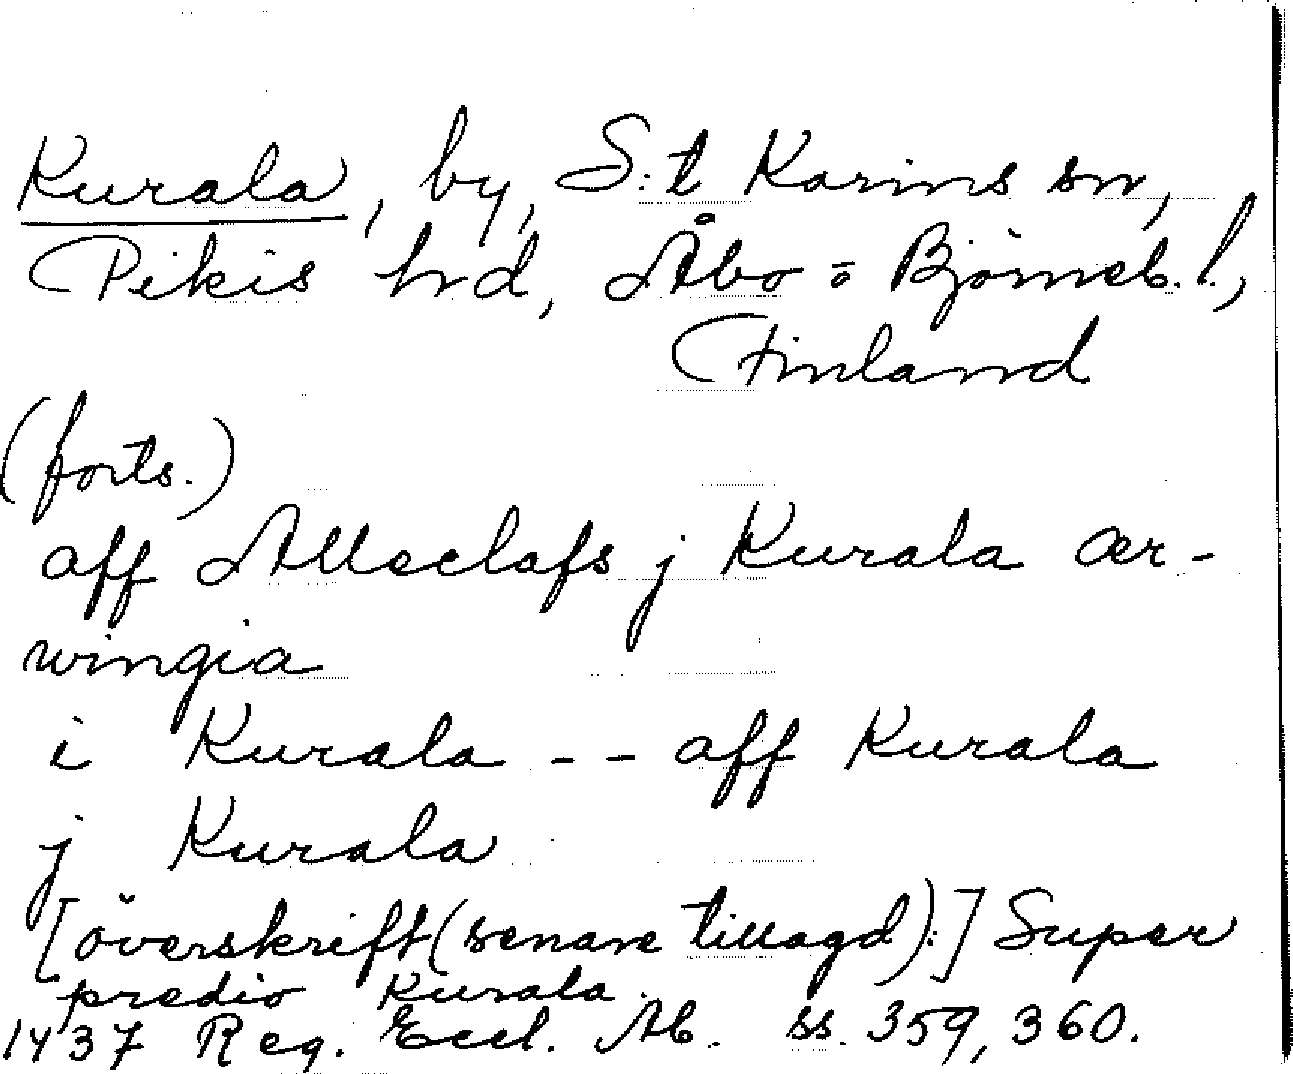 Kurala, by, S:t Karins sn,
Pikis hd, Åbo = Björneb. l.,
Finland
(forts.)
aff Alleelafs j Kurala ær-
wingia
i Kurala -- aff Kurala
j Kurala
[överskrift (senare tillagd):] Super
predio Kurala.
1437 Reg. Eccl. Ab. ss. 359, 360.